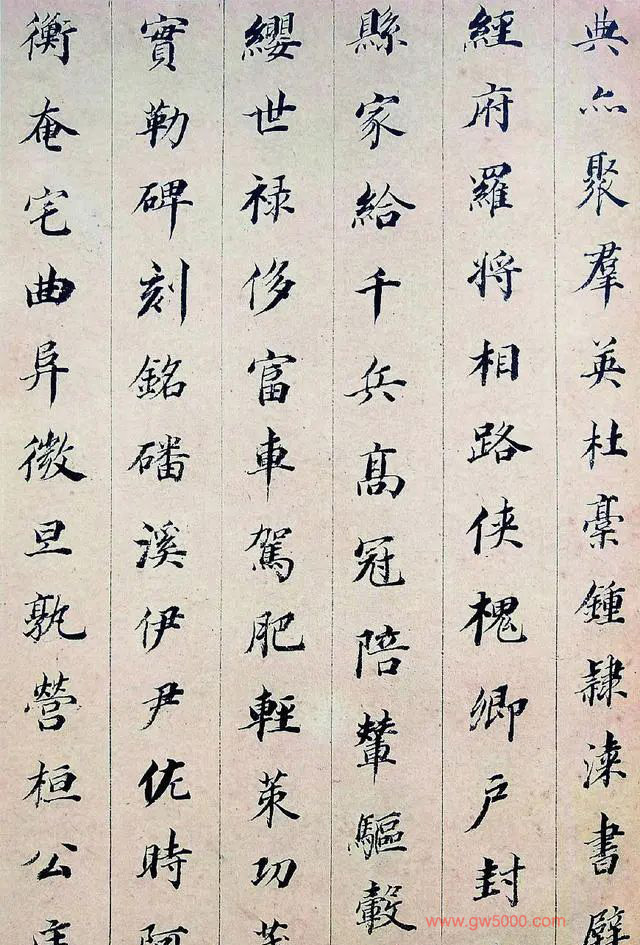 典亦聚羣英杜稾鍾隸漆書壁
經府羅将相路俠槐卿户封
縣家給千兵髙冠陪輦驅轂
纓世禄侈富車駕肥輕策功茂
實勒碑刻銘磻溪伊尹佐時阿
衡奄宅曲阜微旦孰營桓公匡
www.gw5000.com